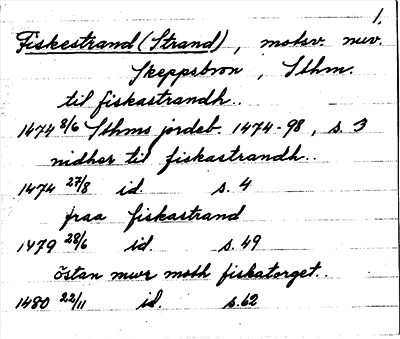 1.
Fiskestrand (Strand), motsv. nuv.
Skeppsbron, Sthm.
til fiskastrandh..
1474 8/6 Sthms jordeb. 1474-98, s. 3
nidher til fiskastrandh..
1474 27/8 id. s. 4
fraa fiskastrand
1479 28/6 id. s. 49
östan mwr moth fiskatorget..
1480 22/11 id. s. 62